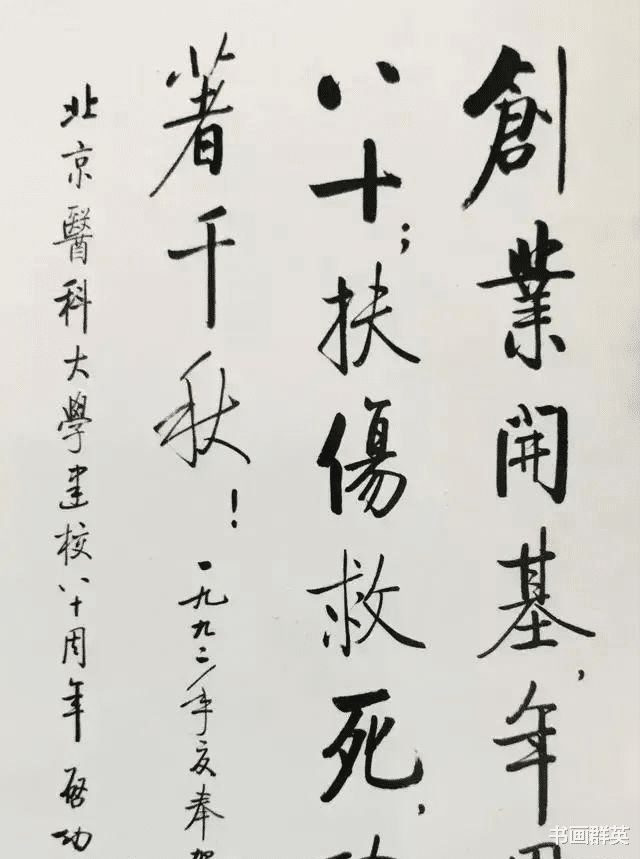 創業開基,年
八十;扶傷救死,
著千秋!一九九二年夏奉
北京醫科大學建校八十周年 啓功
书画群英